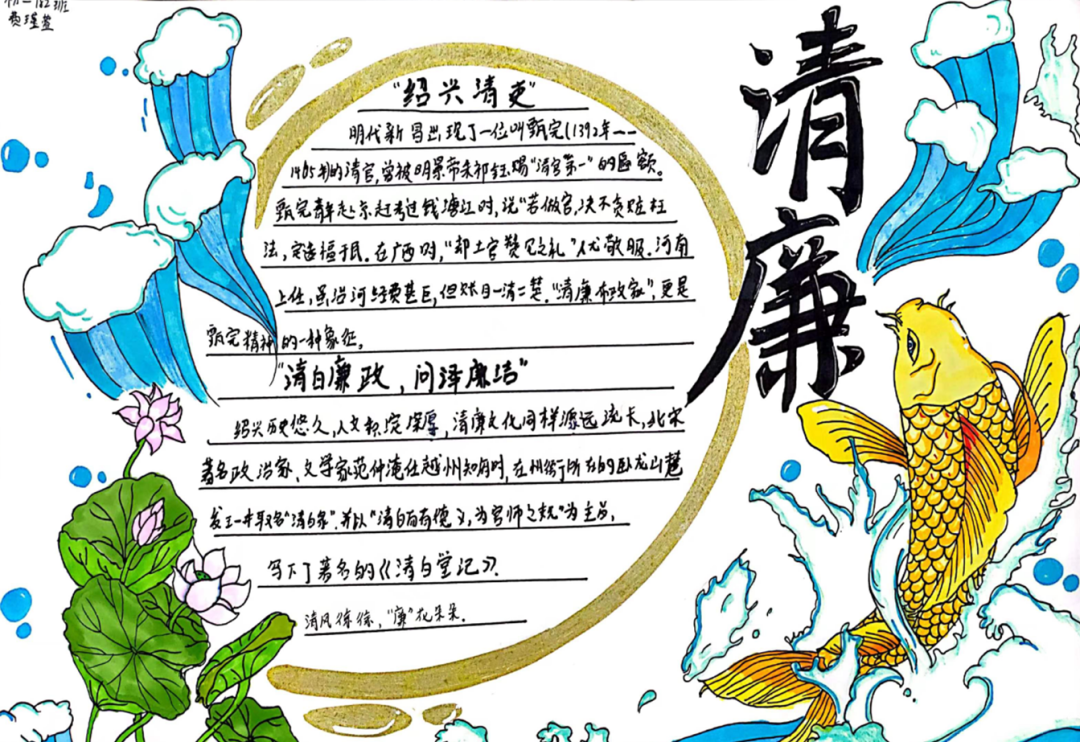 初一(2)班
费瑾萱
清廉
"绍兴清吏"
明代新昌出现了一位叫甄完(1392年——
1465年)的清官,曾被明景帝朱祁钰赐"清官第一"的匾额。
甄完青年赴京赶考过钱塘江时,说"若做官,决不贪赃枉
法,定造福于民。在广西时,"却土官贽见之礼"人尤敬服。河南
上任,虽治河经费甚巨,但账目一清二楚。"清廉布政家",更是
甄完精神的一种象征。
"清白廉政,问泽廉洁"
绍兴历史悠久,人文积淀深厚,清廉文化同样源远流长,北宋
著名政治家、文学家范仲淹任越州知府时,在州衙所在的卧龙山麓
发王一井取名"清白泉",并以"清白而有德义,为官师之规"为主旨,
写下了著名的《清白堂记》。
清风徐徐,"廉"花朵朵。